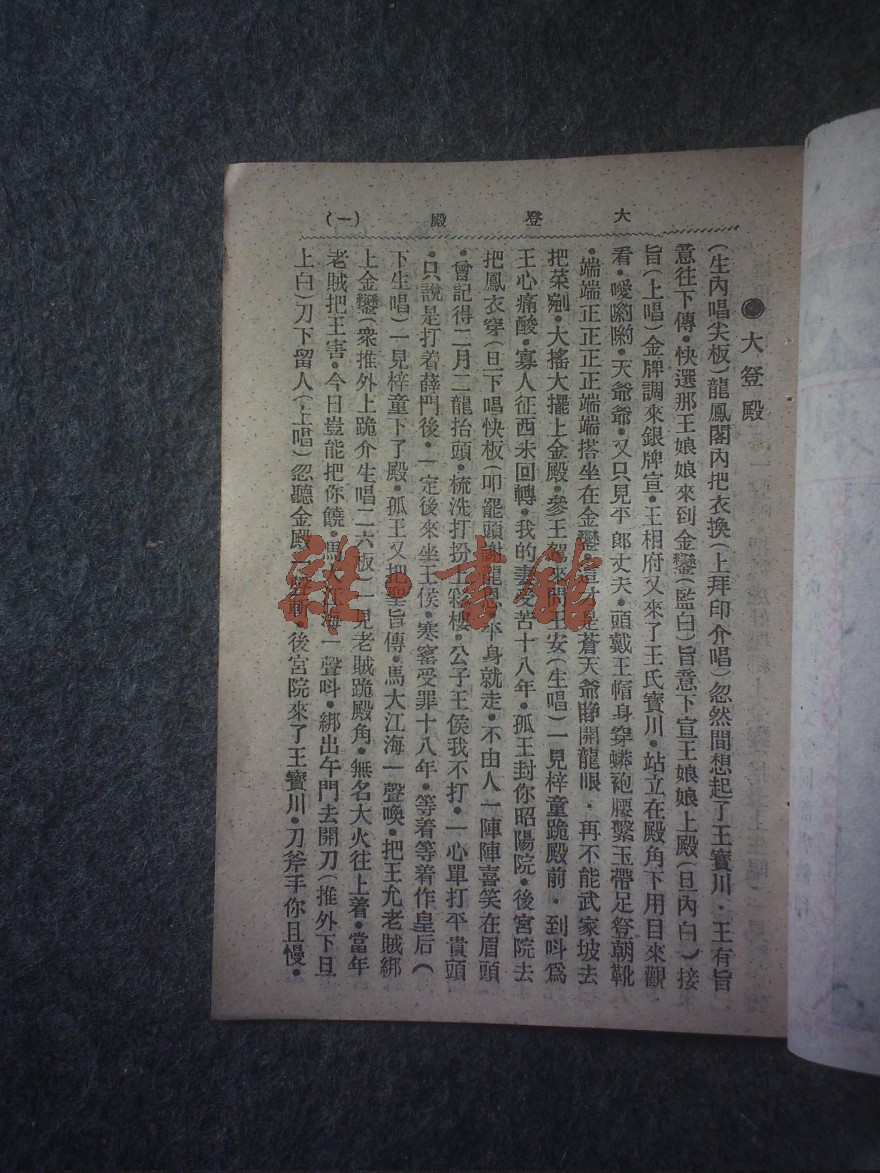 大登殿(一)
●大登殿
(生內唱尖板)龍鳳閣內把衣換(上拜印介唱)忽然間想起了王寶川·王有旨
意往下傳·快選那王娘娘來到金鑾(監白)旨意下宣王娘娘上殿(旦內白)接
旨(上唱)金牌調來銀牌宣·王相府又來了王氏寶川·站立在殿角下用目來觀
看·噯喲喲·天爺爺·又只見平郎丈夫·頭戴王帽身穿蟒袍腰繫玉帶足登朝靴
·端端正正正正端端搭坐在金鑾·是蒼天爺睜開龍眼·再不能武家坡去
把菜剜·大搖大擺上金殿·參王駕來問王安(生唱)一見梓童跪殿前·到呌為
王心痛酸·寡人征西未回轉·我的妻受苦十八年·孤王封你昭陽院·後宮院去
把鳳衣穿(旦下唱快板)叩罷頭謝龍恩·平身就走·不由人一陣陣喜笑在眉頭
·曾記得二月二龍抬頭·梳洗打扮上彩樓·公子王侯我不打·一心單打平貴頭
·只說是打着薛門後·一定後來坐王侯·寒窰受罪十八年·等着等着作皇后(
下生唱)一見梓童下了殿·孤王又把聖旨傳·馬大江海一聲喚·把王允老賊綁
上金鑾(衆推外上跪介生唱二六板)一見老賊跪殿角·無名大火往上着·當年
老賊把王害·今日豈能把你饒·馬大江海一聲呌·綁出午門去開刀(推外下旦
上白)刀下留人(上唱)忽聽金殿一聲斬·後宮院來了王寶川·刀斧手你且慢·
雜·書館